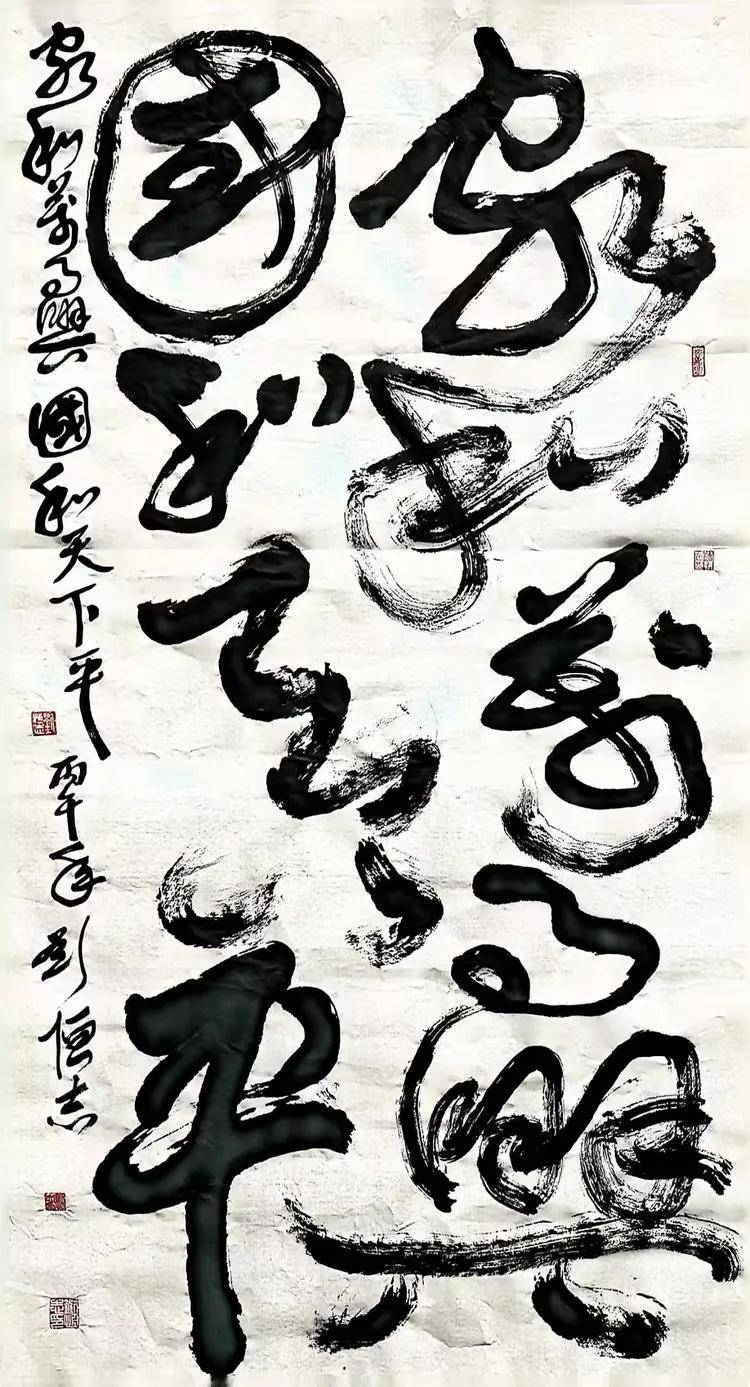 家和萬事興
國和天下平
家和萬事興 國和天下平 丙午年 恒志